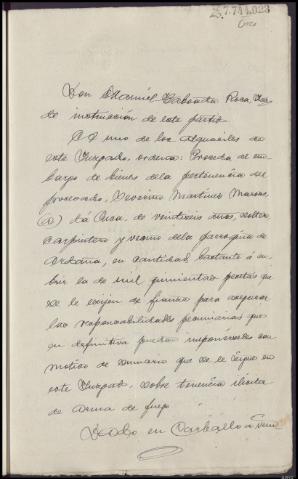 Don Manuel Taboada Roca, Juez
de instrucción de este partido
A uno de los alguaciles de
este Juzgado, ordeno: Proceda de em
bargo de bienes de la pertenencia del
procesado, Martinez
La Cura, de veintiseis años, soltero
carpintero y vecino de la parroquia de
en cantidad bastante á cu
brir la de mil quinientas pesetas que
se le exijen de fianza para asegurar
las responsabilidades pecuniarias que
en definitiva puedan imponerseles con
motivo de sumario que se le sigue en
este Juzgado, sobre tenencia ilicita
de arma de fuego
Dado en Carballo a